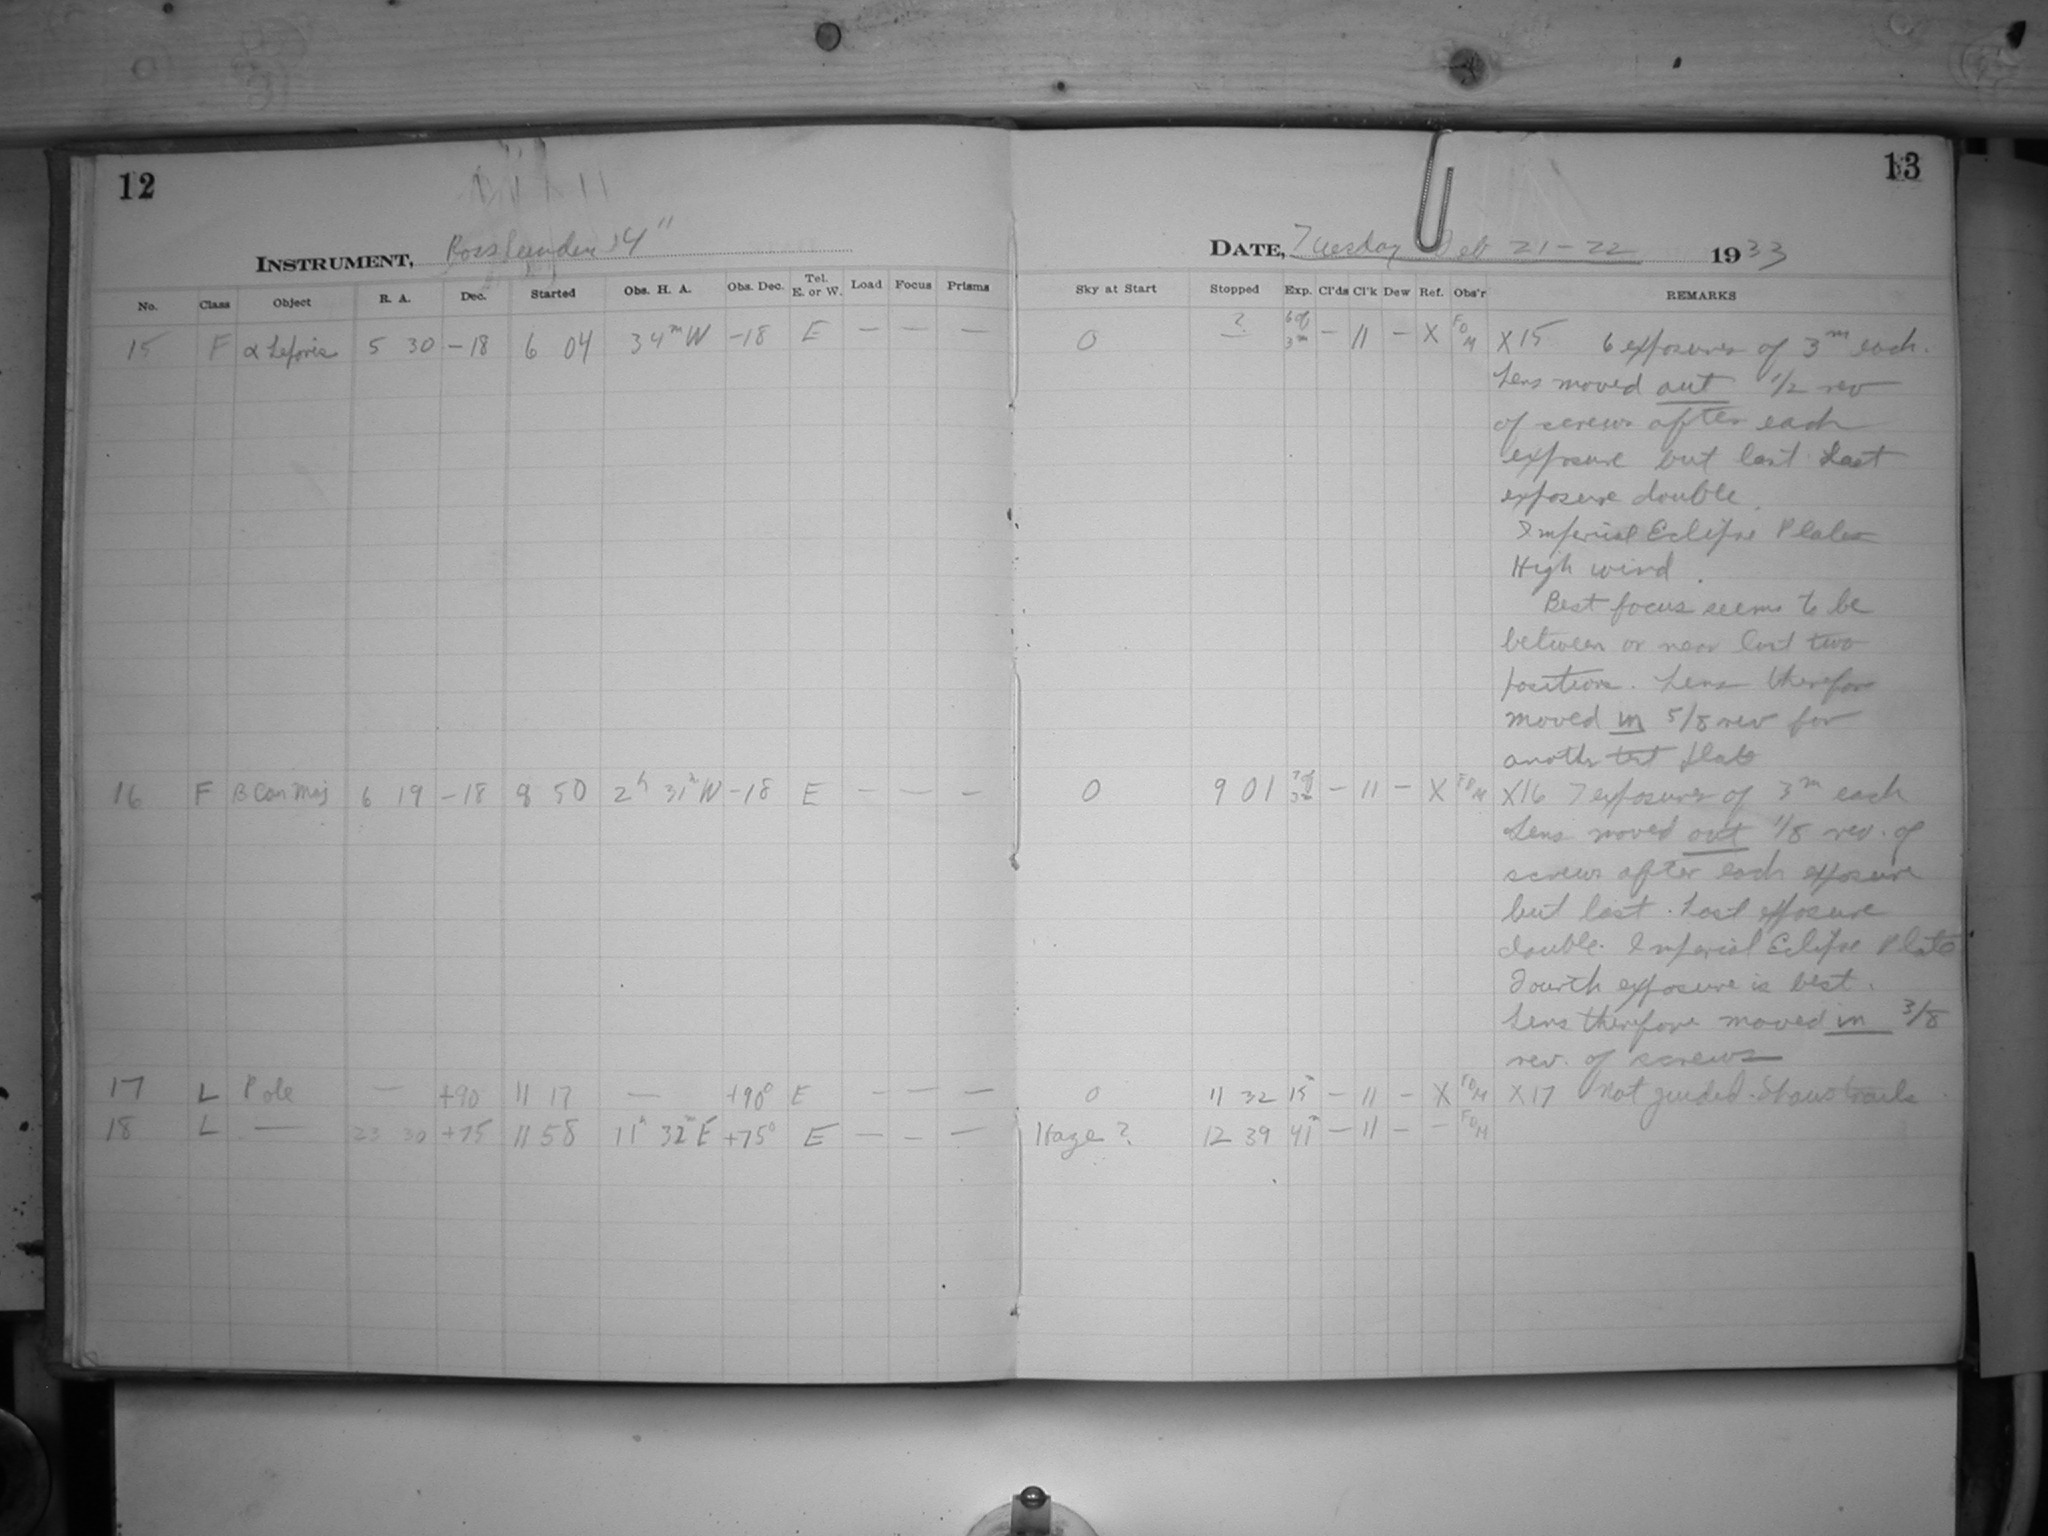 12
INSTRUMENT, Ross Lundin 14"
No. Class Object R. A. Dec. Started Obs. H. A. Obs. Dec. Tel. E. or W. Load Focus Prisms
15 F α Leporis 5 30 -18 6 04 34m W -18 E — — —
16 F B Can Maj 6 19 -18 8 50 2h 31m W -18 E — — —
17 L Pole — +90 11 17 — +90° E — — —
18 L — 23 30 +75 11 58 11h 32m E +75° E — — —
13
DATE, Tuesday Feb 21-22 1933
Sky at Start Stopped Exp. Cl'ds Cl'k Dew Ref. Obs'r REMARKS
0 ? — 6 of 3m — 11 — X FDM X15 6 exposures of 3m each.
Lens moved out 1/2 rev
of screws after each
exposure but last. Last
exposure double.
Imperial Eclipse Plates
High wind.
Best focus seems to be
between or near last two
positions. Lens therefore
moved in 5/8 rev for
another test plate
0 9 01 7 of 3m — 11 — X FDM X16 7 exposures of 3m each
Lens moved out 1/8 rev. of
screws after each exposure
but last. Last exposure
double. Imperial Eclipse Plate
Fourth exposure is best.
Lens therefore moved in 3/8
rev. of screws
0 11 32 15m — 11 — X FDM X17 Not guided. Shows trails
Haze? 12 39 41m — 11 — — FDM